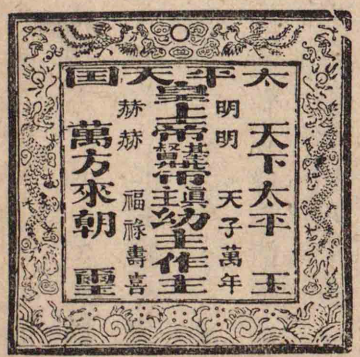 太平天囯
天下太平 玉
明明 天子萬年
皇上帝基督帶眞王幼主作主
赫赫 福祿壽喜
萬方來朝 璽